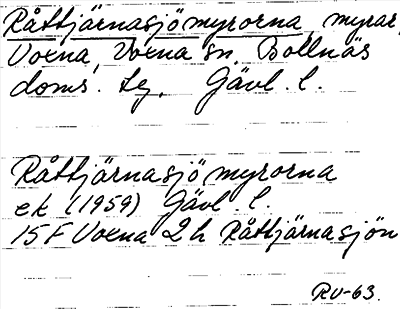 Råttjärnasjömyrorna, myrar,
Voxna, Voxna sn, Bollnäs
doms. tg, Gävl. l.
Råttjärnasjömyrorna
ek (1959) Gävl. l.
15F Voxna 2h Råttjärnasjön
RV-63.